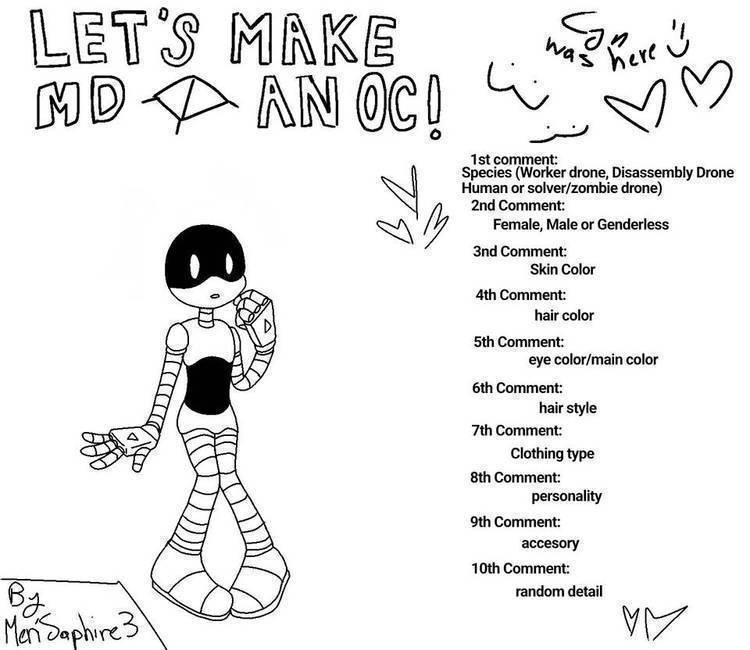 LET'S MAKE
MD AN OC!
Cyn
was here
1st comment:
Species (Worker drone, Disassembly Drone
Human or solver/zombie drone)
2nd Comment:
Female, Male or Genderless
3nd Comment:
Skin Color
4th Comment:
hair color
5th Comment:
eye color/main color
6th Comment:
hair style
7th Comment:
Clothing type
8th Comment:
personality
9th Comment:
accesory
10th Comment:
random detail
By
Meri Saphire3